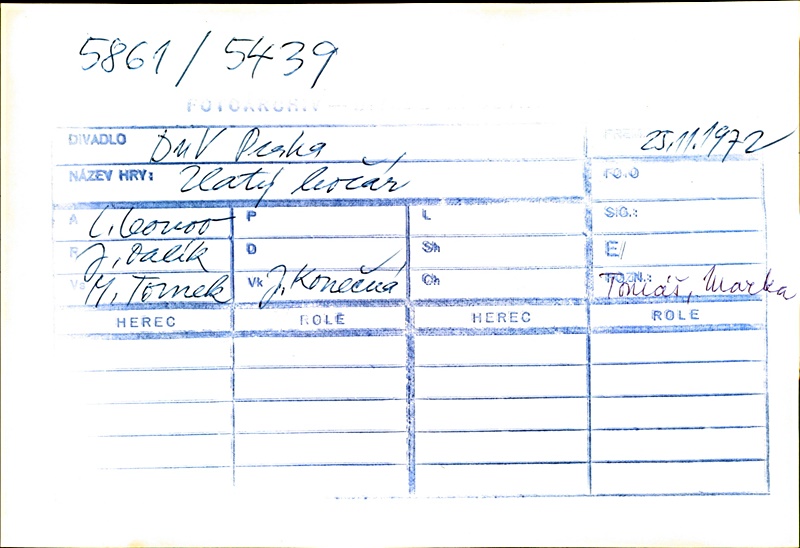 5861 / 5439
FOTOARCHIV
DIVADLO DNV Praha 25.11.1972
NÁZEV HRY: Zlatý kočár FOTO
A L. Leonov P L SIG.:
R J. Dalík D Sh E/
Vs M. Tomek Vk J. Konečná Ch POZN.: Tomáš, Marka
HEREC ROLE HEREC ROLE